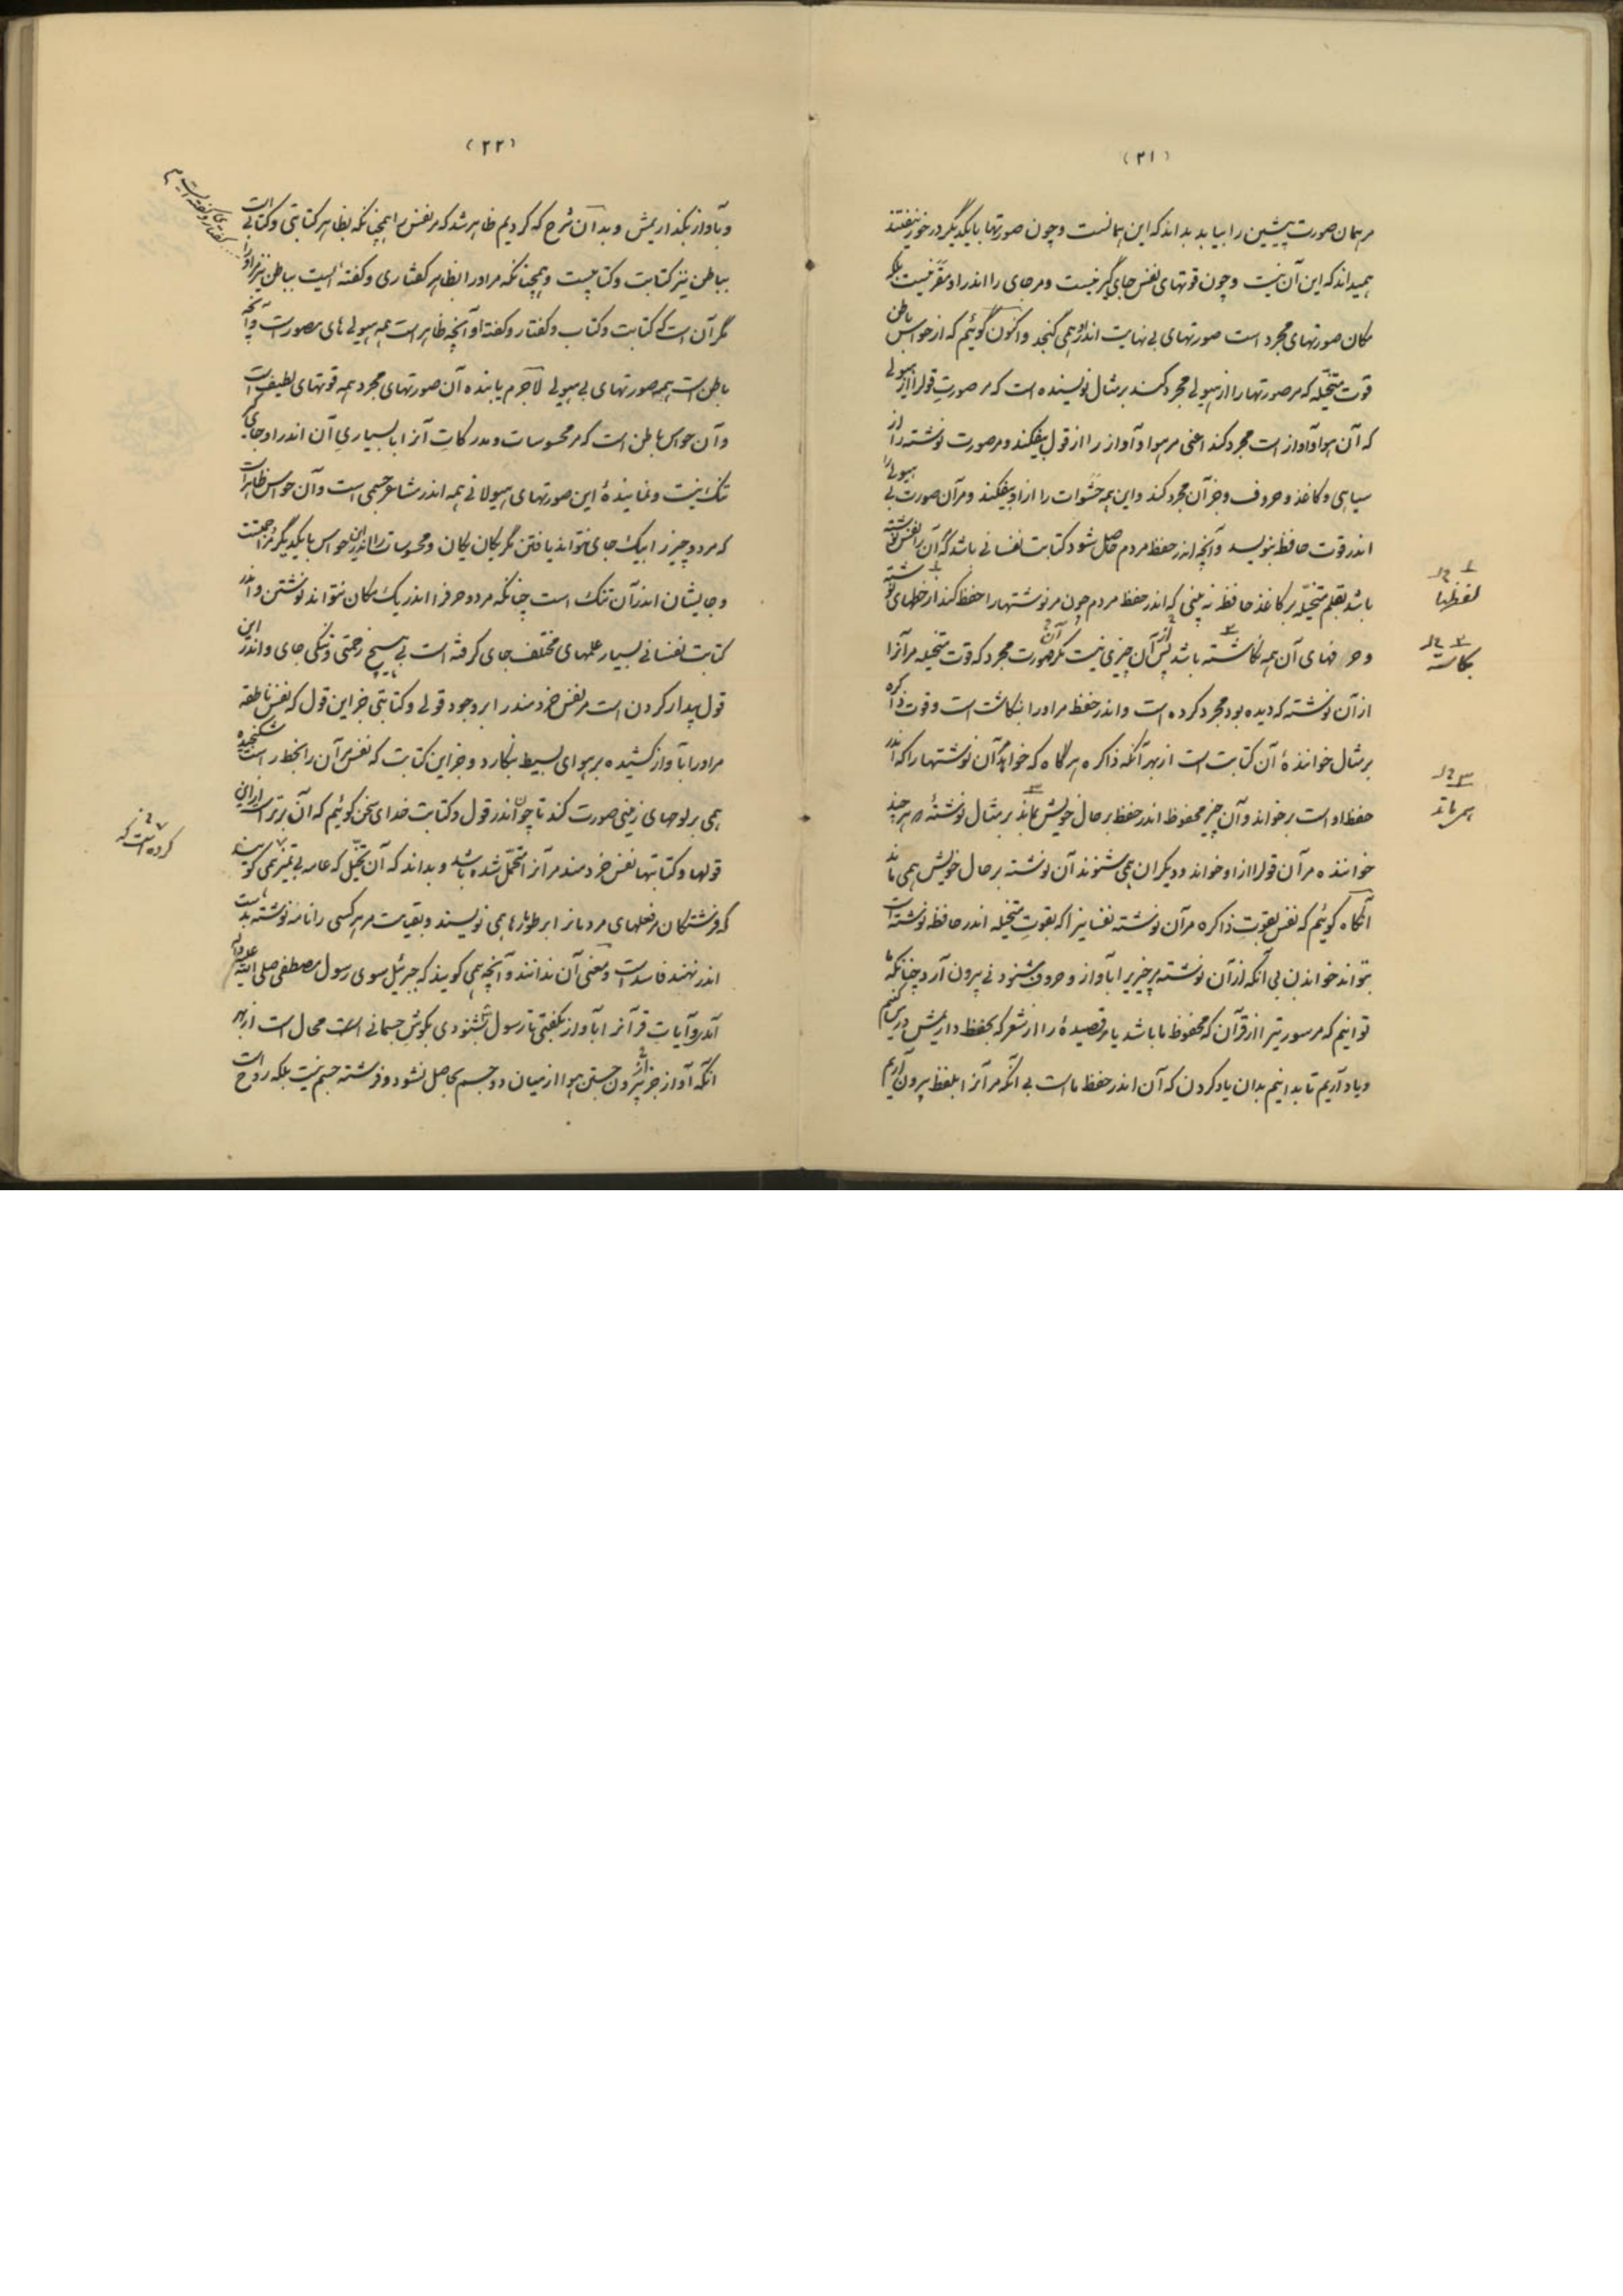 (۲۱)
مر همان صورت پیشین را بیابد بداند که این همانست و چون صورتها با یکدیگر در خور نیفتند
همیداند که این آن نیست و چون قوتهای نفس جای گیر نیست و مر جای را اندر او مقر نیست بلکه
مکان صورتهای مجرد است صورتهای بی نهایت اندرو همی گنجد و اکنون گوئیم که از حواس باطن
قوت متخیله که مر صورتها را از هیولی مجرد کند بر مثال نویسنده است که مر صورت قولرا از هیولی
که آن هوا و آواز است مجرد کند اعنی مر هوا و آواز را از قول بیفکند و مر صورت نوشته را از
سیاهی و کاغذ و حروف و جز آن مجرد کند و این همه حشوات را از او بیفکند و مر آن صورت بی هیولی را
اندر قوت حافظه بنویسد و آنچه اندر حفظ مردم حاصل شود کتابت نفسانی باشد که آن را نفس نوشته
باشد بقلم متخیله بر کاغذ حافظه نه بینی که اندر حفظ مردم چون مر نوشتها را حفظ کند از خطهای نوشته
و حرفهای آن همه نگاشته باشد پس از آن چیزی نیست مگر آن صورت مجرد که قوت متخیله مر آنرا
از آن نوشته که دیده بود مجرد کرده است و اندر حفظ مر اورا بنگاشت است و قوت ذاکره
بر مثال خوانندهٔ آن کتابت است از بهر آنکه ذاکره هرگاه که خواهد آن نوشتها را که اندر
حفظ او است بر خواند و آن چیز محفوظ اندر حفظ بر حال خویش بماند بر مثال نوشتهٔ که هر چند
خواننده مر آن قولرا از او خواند و دیگران همی شنوند آن نوشته بر حال خویش همی ماند
آنگاه گوئیم که نفس بقوت ذاکره مر آن نوشته نفسانیرا که بقوت متخیله اندر حافظه نوشته است
بتواند خواندن بی آنکه از آن نوشته مر چیزیرا بآواز و حروف شنودنی بیرون آرد چنانکه ما
توانیم که مر سورتیرا از قرآن که محفوظ ما باشد یا مر قصیدهٔ را از شعر که بحفظ داریمش درس کنیم
و یاد آریم تا بدانیم بدان یاد کردن که آن اندر حفظ ما است بی آنکه مر آنرا بلفظ بیرون آریم
۱ خ ل
لفظها
۲ خ ل
بگاشته
۳ خ ل
همی ماند
(۲۲)
و بآواز بگذاریمش و بدان شرح که کردیم ظاهر شد که مر نفس را همچنانکه بظاهر کتابتی و کتابی است
بباطن نیز کتابت و کتابیست و همچنانکه مر اورا بظاهر گفتاری و گفتهٔ ایست بباطن نیز مر اورا
گفتاری و گفته ایست
مگر آن است که کتابت و کتاب و گفتار و گفته او آنچه ظاهر است همه هیولی های مصور است و آنچه
باطن است همه صورتهای بی هیولی لاجرم یابنده آن صورتهای مجرد همه قوتهای لطیف است
و آن حواس باطن است که مر محسوسات و مدرکات آنرا با بسیاری آن اندر او جای
تنگ نیست و نمایندهٔ این صورتهای هیولانی همه اندر مشاعر جسمی است و آن حواس ظاهر است
که مر دو چیز را بیک جای نتواند یافتن مگر یکان یکان و محسوسات را اندر این حواس با یکدیگر مزاحمتست
و جایشان اندر آن تنگ است چنانکه مر دو حرفرا اندر یک مکان نتواند نوشتن و اندر
کتابت نفسانی بسیار علمهای مختلف جای گرفته است بی هیچ زحمتی و تنگی جای و اندر این
قول بیدار کردن است مر نفس خردمند را بر وجود قولی و کتابتی جز این قول که نفس ناطقه
مر اورا بآواز کشیده بر هوای بسیط بنگارد و جز این کتابت که نفس مر آن را بخط راست شکنجیده
همی بر لوحهای زمینی صورت کند تا چون اندر قول و کتابت خدای سخن گوئیم که آن برتر است از این
قولها و کتابتها نفس خردمند مر آنرا محتمل شده باشد و بداند که آن تخیل که عامه بی تمیز همی گویند
که فرشتگان مر فعلهای مردمانرا بر طومارها همی نویسند و بقیامت مر هر کسی را نامه نوشته بدست
اندر نهند فاسد است و معنی آن ندانند و آنچه همی گویند که جبرئیل سوی رسول مصطفی صلی الله علیه و آله
آمد و آیات قرآنرا بآواز بگفتی تا رسول بشنودی بگوش جسمانی است محال است از بهر
آنکه آواز جز از بیرون جستن هوا از میان دو جسم حاصل نشود و فرشته جسم نیست بلکه روح است